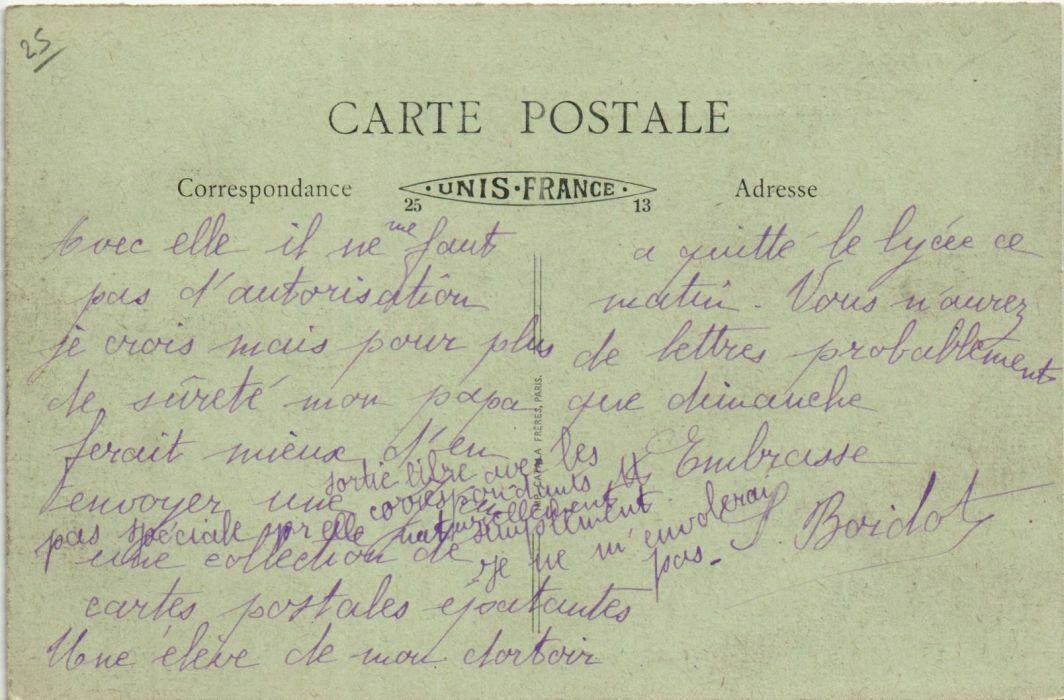 25
CARTE POSTALE
Correspondance
UNIS·FRANCE
25 13
Adresse
Avec elle il ne me faut
pas d'autorisation
je crois mais pour plus
de sûreté mon papa
ferait mieux d'en
envoyer une
pas spéciale pr elle naturellement
sortie libre avec les
correspondants
simplement
je ne m'envolerai
pas.
une collection de
cartes postales épatantes
Une élève de mon dortoir
a quitté le lycée ce
matin. Vous n'aurez
de lettres probablement
que dimanche
Embrasse
S. Boidot
FRÈRES, PARIS.